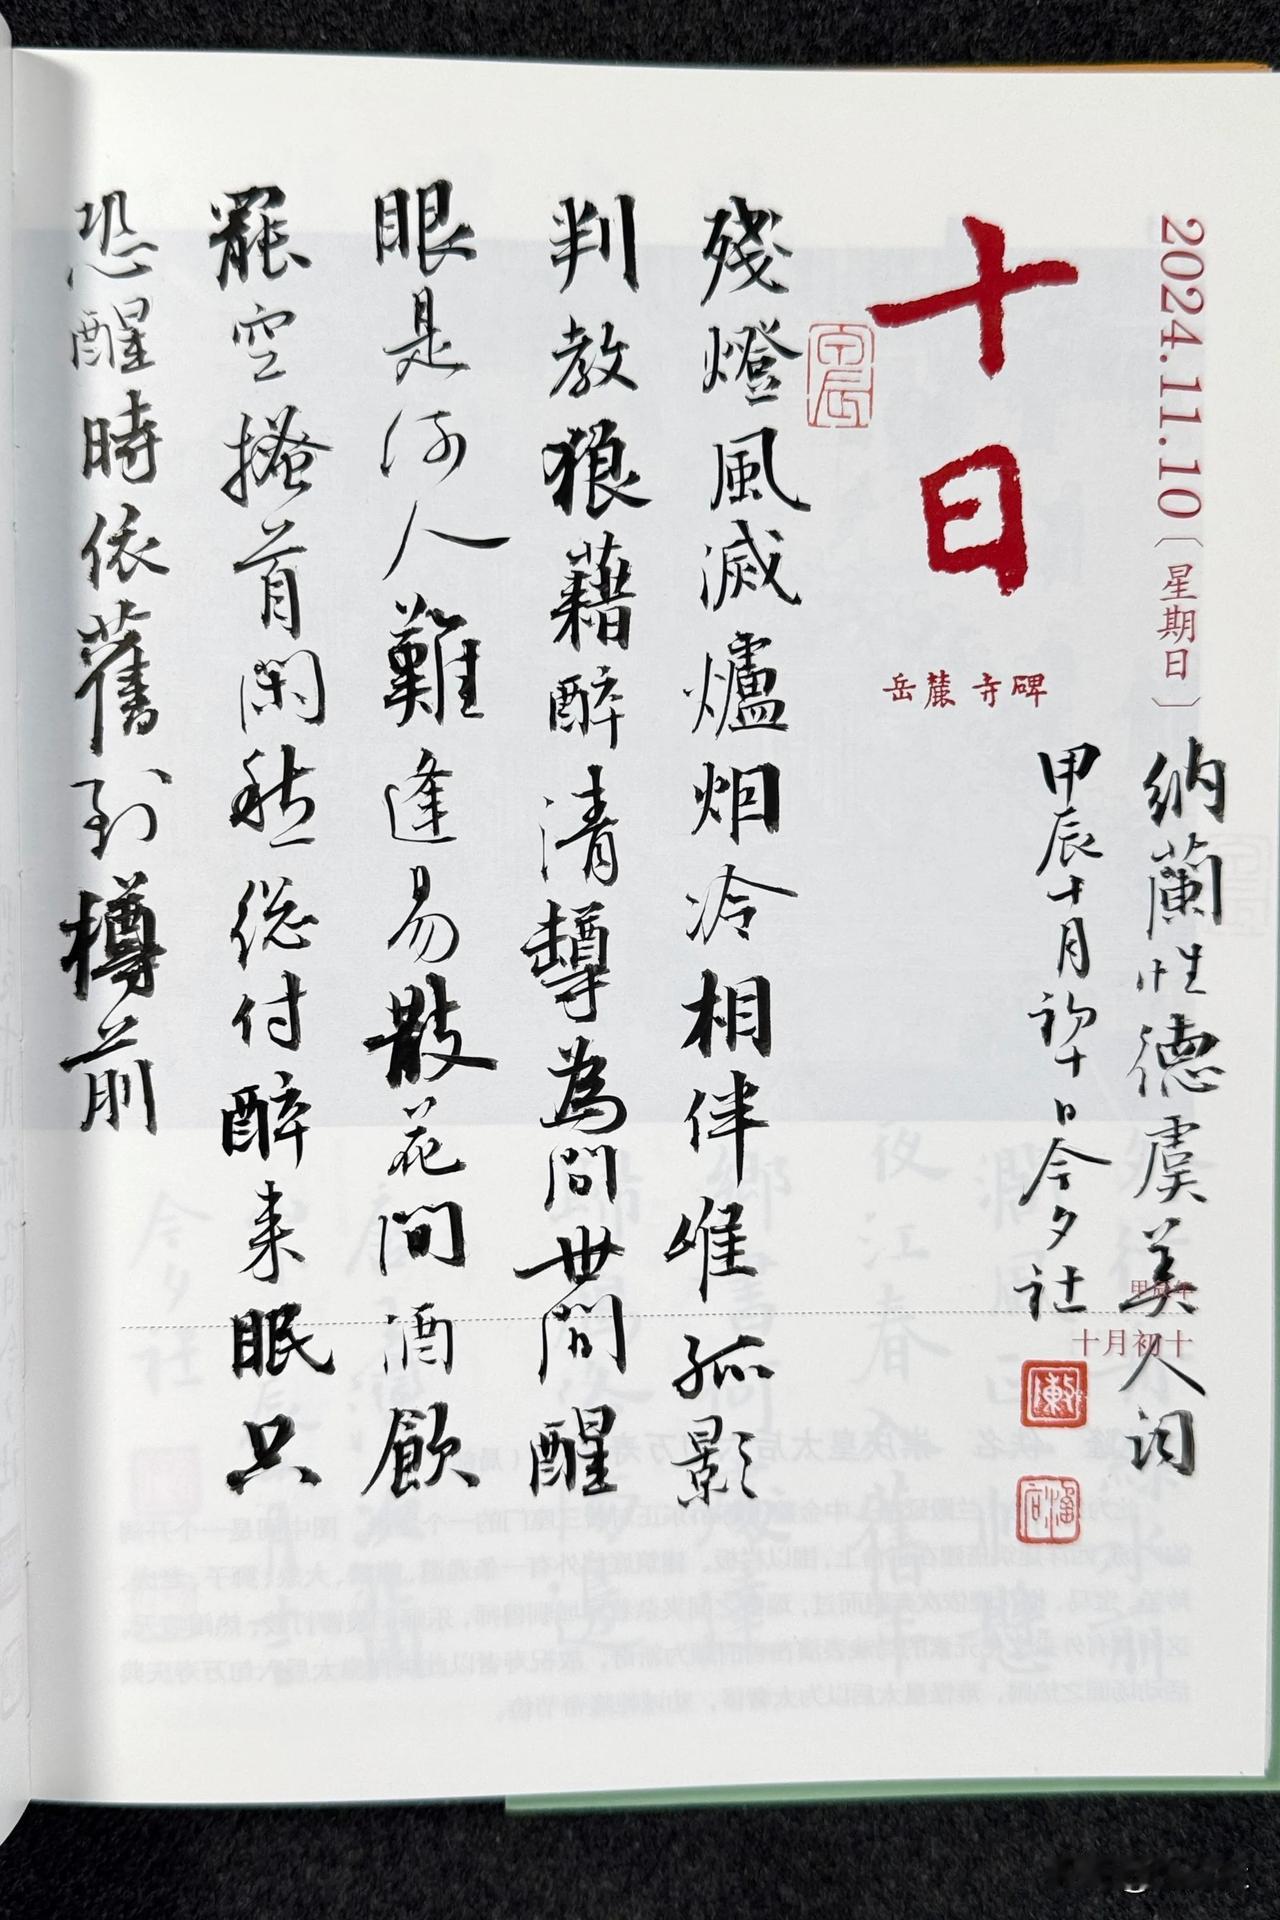 2024.11.10〔星期日〕
十日
岳麓寺碑
殘燈風滅爐烟冷相伴唯孤影
判教狼藉醉清罇為問世間醒
眼是何人難逢易散花間酒飲
罷空搔首閑愁總付醉来眠只
恐醒時依舊到樽前
納蘭性德虞美人词
甲辰十月初十日今夕社
甲辰年
十月初十
甲辰